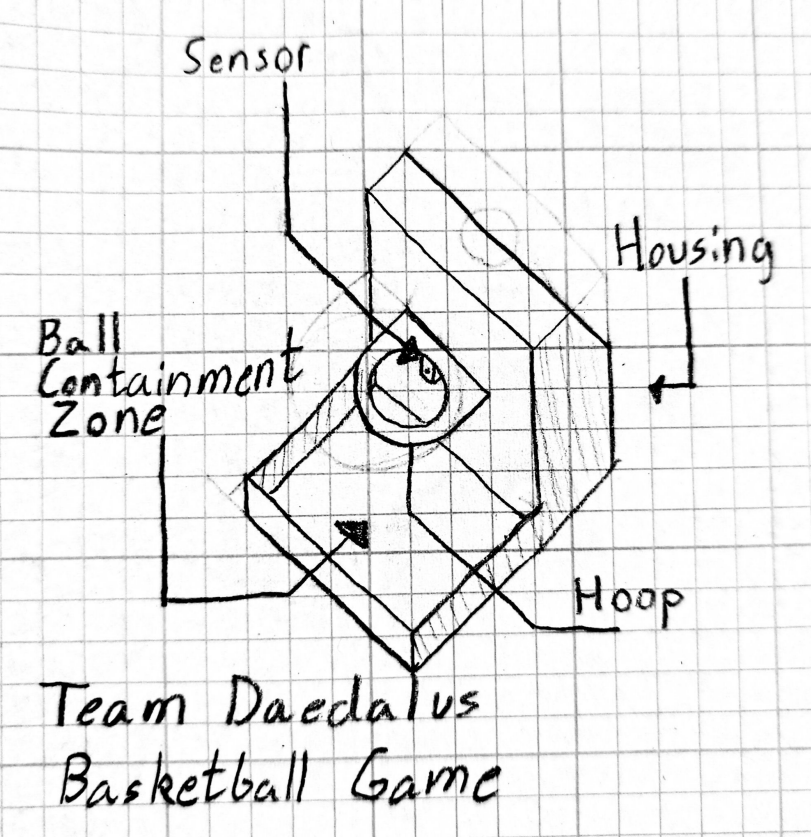 Sensor
Housing
Ball
Containment
Zone
Hoop
Team Daedalus
Basketball Game